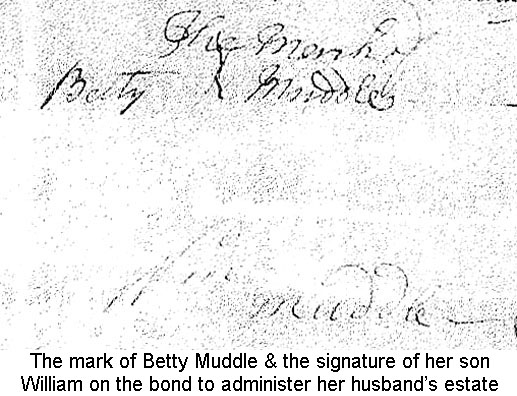 The Mark of
Betty X Muddle
Wm
Muddle
The mark of Betty Muddle & the signature of her son
William on the bond to administer her husband's estate